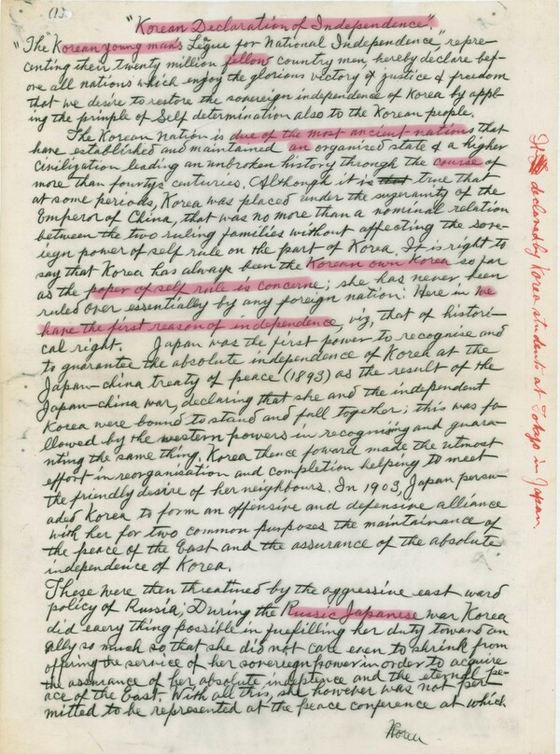 (1).
"Korean Declaration of Independence".
"The Korean young man's Legue for National Independence", repre-
centing their twenty million fellow country men, hereby declare bef-
ore all nations which enjoy the glorious victory of justice & freedom
that we desire to restore the sovereign independence of Korea by appl-
ing the prinple of Self determination also to the Korean people.
The Korean Nation is due of the most ancient nations that
have established and maintained an organised state & a higher
civilization, leading an unbroken history through the course of
more than fourtys centuries. Although it is that true that
at some periods, Korea was placed under the suzeranity of the
Emperor of China, that was no more than a nominal relation
between the two ruling families without affecting the sov-
eign power of self rule on the part of Korea. It is right to
say that Korea has always been the Korean own Korea so far
as the poper of self rule is concerne; she has never been
ruled over essentially by any foreign nation. Here in we
have the first reason of independence, viz, that of histori-
cal right. Japan was the first power to recognise and
to guarantee the absolute independence of Korea at the
Japan-china treaty of peace (1893) as the result of the
Japan-china war, declaring that she and the independent
Korea were bound to stand and fall together; this was fo-
llowed by the western powers in recognising and guara-
nting the same thing. Korea thence foward made the utmost
effort in reorganisation and completion helping to meet
the friendly desire of her neighbours. In 1903, Japan persu-
aded Korea to form an offensive and defensive alliance
with her for two common purposes the maintainance of
the peace of the East and the assurance of the absolute
independence of Korea.
These were then threatined by the aggressive east ward
policy of Russia; During the Russic Japanese war Korea
did every thing possible in fuefilling her duty toward an
ally so much so that she did not care even to shrink from
offring the service of her sovereign power in order to acquire
the assurance of her absolute indeptence and the eternal pe-
ace of the East. With all this, she however was not per-
mitted to be represented at the peace conference at which
Korea
It declared by Korea students at Tokyo in Japan.